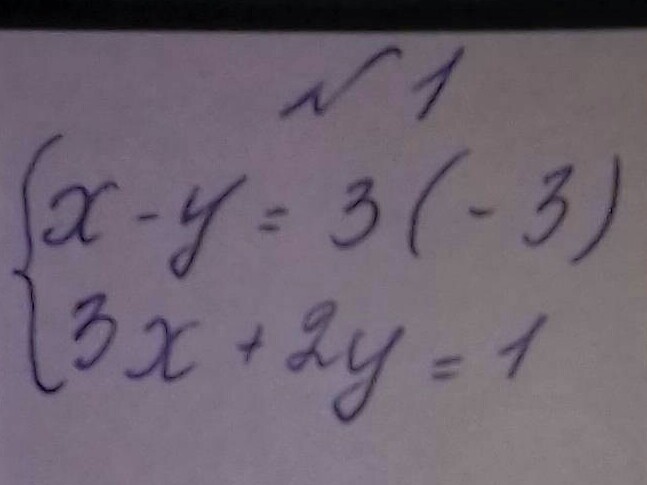 № 1
x - y = 3 (- 3)
3x + 2y = 1